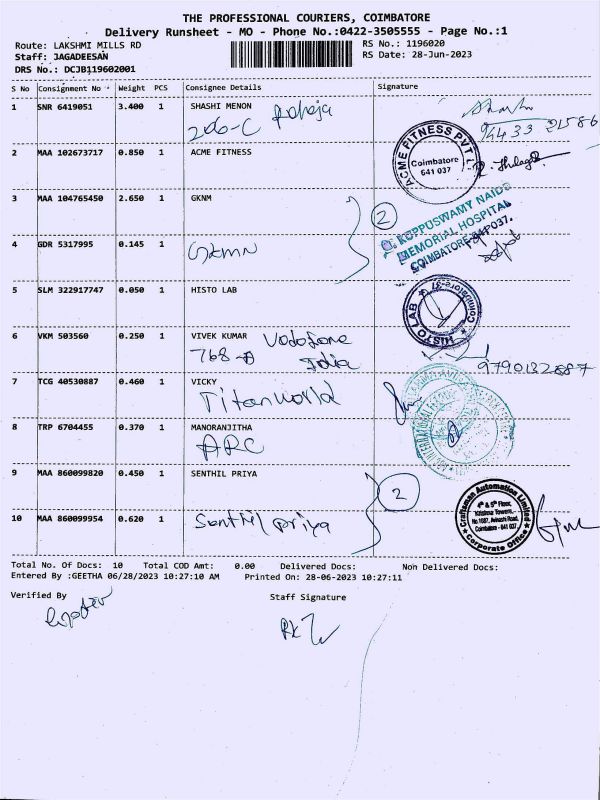 THE PROFESSIONAL COURIERS, COIMBATORE
Delivery Runsheet - MO - Phone No.:0422-3505555 - Page No.:1
Route: LAKSHMI MILLS RD
RS No.: 1196020
Staff: JAGADEESAN
RS Date: 28-Jun-2023
DRS No.: DCJB119602001
S No Consignment No Weight PCS Consignee Details Signature
1 SNR 6419051 3.400 1 SHASHI MENON
206-C Raheja
94433 21586
2 MAA 102673717 0.850 1 ACME FITNESS
ACME FITNESS PVT L
Coimbatore
641 037
3 MAA 104765450 2.650 1 GKNM
2
KUPPUSWAMY NAIDU
MEMORIAL HOSPITAL
COIMBATORE-641037.
4 GDR 5317995 0.145 1
5 SLM 322917747 0.050 1 HISTO LAB
HISTO LAB
6 VKM 503560 0.250 1 VIVEK KUMAR
Vodafone
768
India
9790132887
7 TCG 40530887 0.460 1 VICKY
Titanworld
8 TRP 6704455 0.370 1 MANORANJITHA
ARC
9 MAA 860099820 0.450 1 SENTHIL PRIYA
2
Craftsman Automation Limited
4th & 5th Floor,
Krishna Towers,
No 1087, Avinashi Road,
Coimbatore - 641 037.
Corporate Office
10 MAA 860099954 0.620 1
Senthil priya
Total No. Of Docs: 10 Total COD Amt: 0.00 Delivered Docs: Non Delivered Docs:
Entered By :GEETHA 06/28/2023 10:27:10 AM Printed On: 28-06-2023 10:27:11
Verified By
Staff Signature